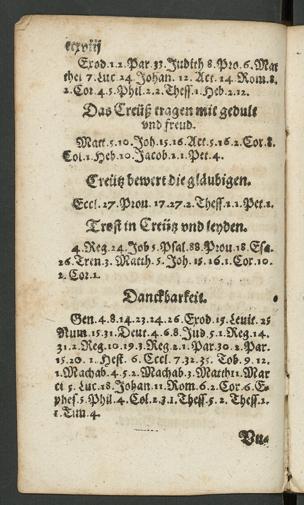 Exod.1.2.Par.33.Judith 8.Pro.6.Mat
thei 7.Luc 24 Johan. 12. Act. 14 Rom.8.
2.Cor.4.5.Phil.2.2.Thess.1.Heb.2.12.
Das Creütz tragen mit gedult
vnd freud.
Matt.5.10.Joh.15.16.Act.5.16.2.Cor.8.
Col.1.Heb.10.Jacob.1.1.Pet.4.
Creütz bewert die gläubigen.
Eccl.27.Prou.17.27.2.Thess.1.1.Pet.1.
Trost in Creütz vnd leyden.
4.Reg.24.Job 5.Psal.88.Prou.18.Esa.
26.Tren.3.Matth.5.Joh.15.16.1.Cor.10.
2.Cor.1.
Danckbarkeit.
Gen.4.8.14.23.24.26.Exod.15.Leuit.25
Num.15.31.Deut.4.6.8.Jud.5.1.Reg.14.
31.2.Reg.10.19.3.Reg.2.1.Par.30.2.Par.
15.20.1.Hest.6.Eccl.7.32.35.Tob.9.12.
1.Machab.4.5.2.Machab.3.Matth11.Mar
ci 5.Luc.18.Johan.11.Rom.6.2.Cor.6.E-
phes.5.Phil.4.Col.2.3.1.Thess.5.2.Thess.2.
1.Tim.4.